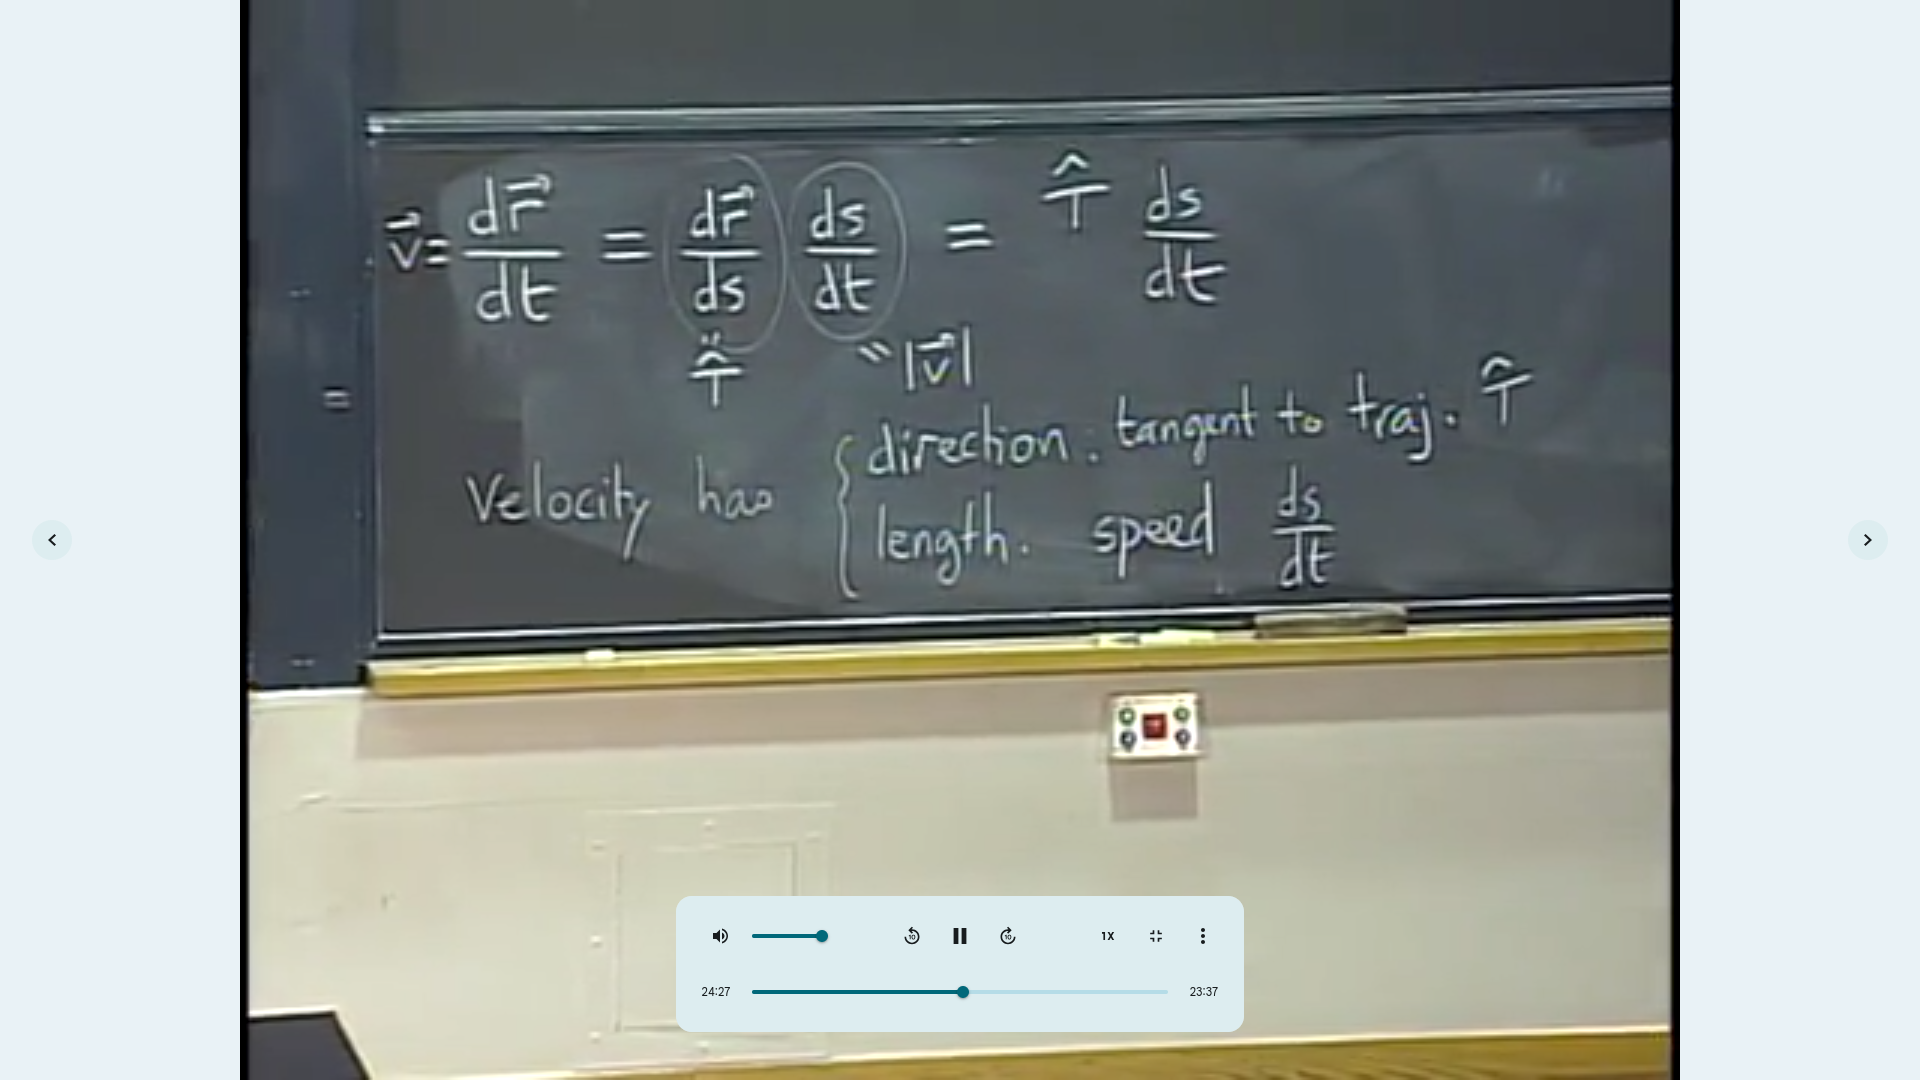 v⃗ = dr⃗/dt = dr⃗/ds ds/dt = T̂ ds/dt
= T̂ = |v⃗|
=
Velocity has { direction : tangent to traj. T̂
length : speed ds/dt
1X
24:27 23:37